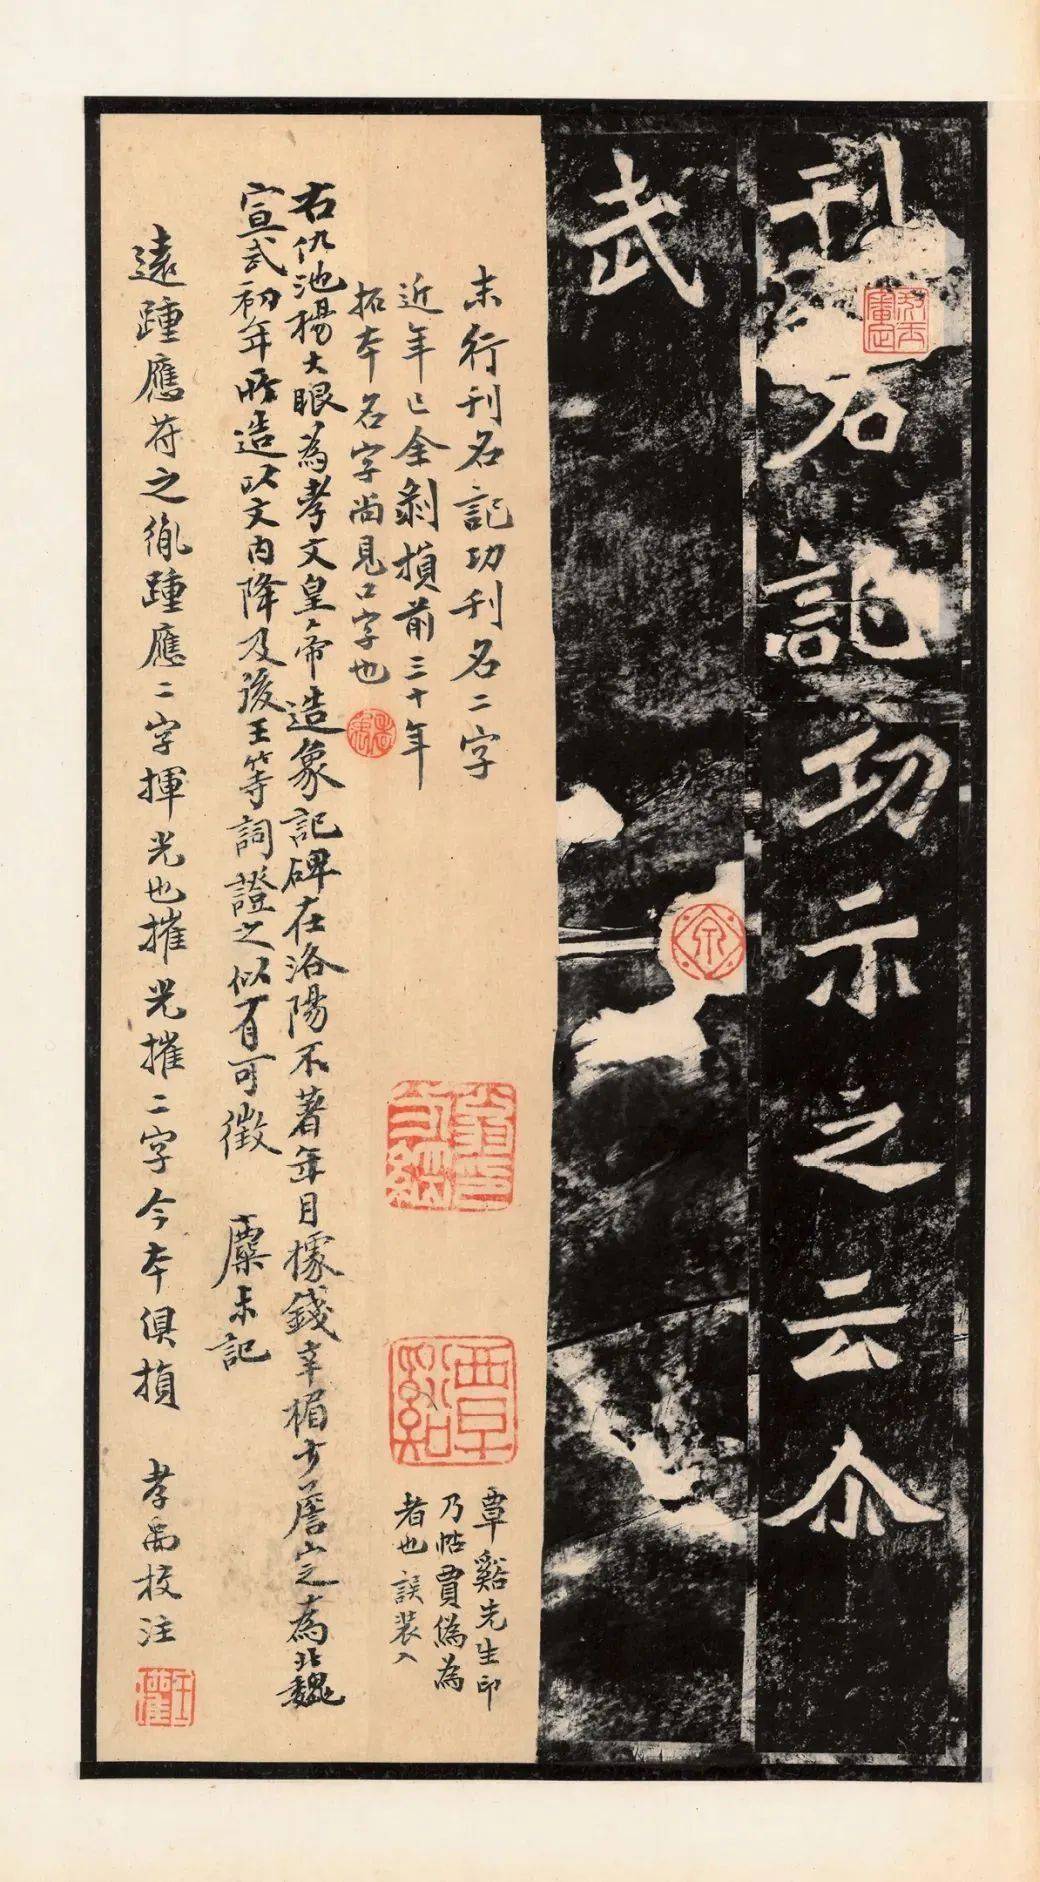 刊石記功示之云尒
武
末行刊名記功刊名二字
近年已全剝損前三十年
拓本名字尚見口字也
覃谿
覃谿先生印
乃帖賈偽為
者也誤裝入
右仇池楊大眼為孝文皇帝造象記碑在洛陽不著年月據錢辛楣少詹定之為北魏
宣武初年所造以文内降及後王等詞證之似有可徵 麋 記
遠踵應符之胤踵應二字揮光也摧光摧二字今本俱損 孝禹校注
王瓘